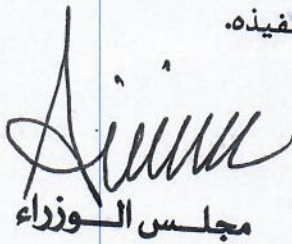 فيذه.
مجلس الوزراء